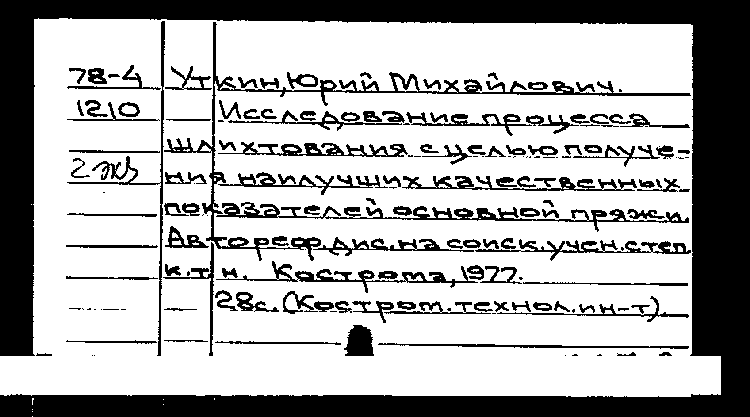 78-4 Уткин, Юрий Михайлович.
1210 Исследование процесса
шлихтования с целью получе-
2 экз ния наилучших качественных
показателей основной пряжи.
Автореф. дис. на соиск. учен. степ.
к.т.н. Кострома, 1977.
28с. (Костром. технол. ин-т).